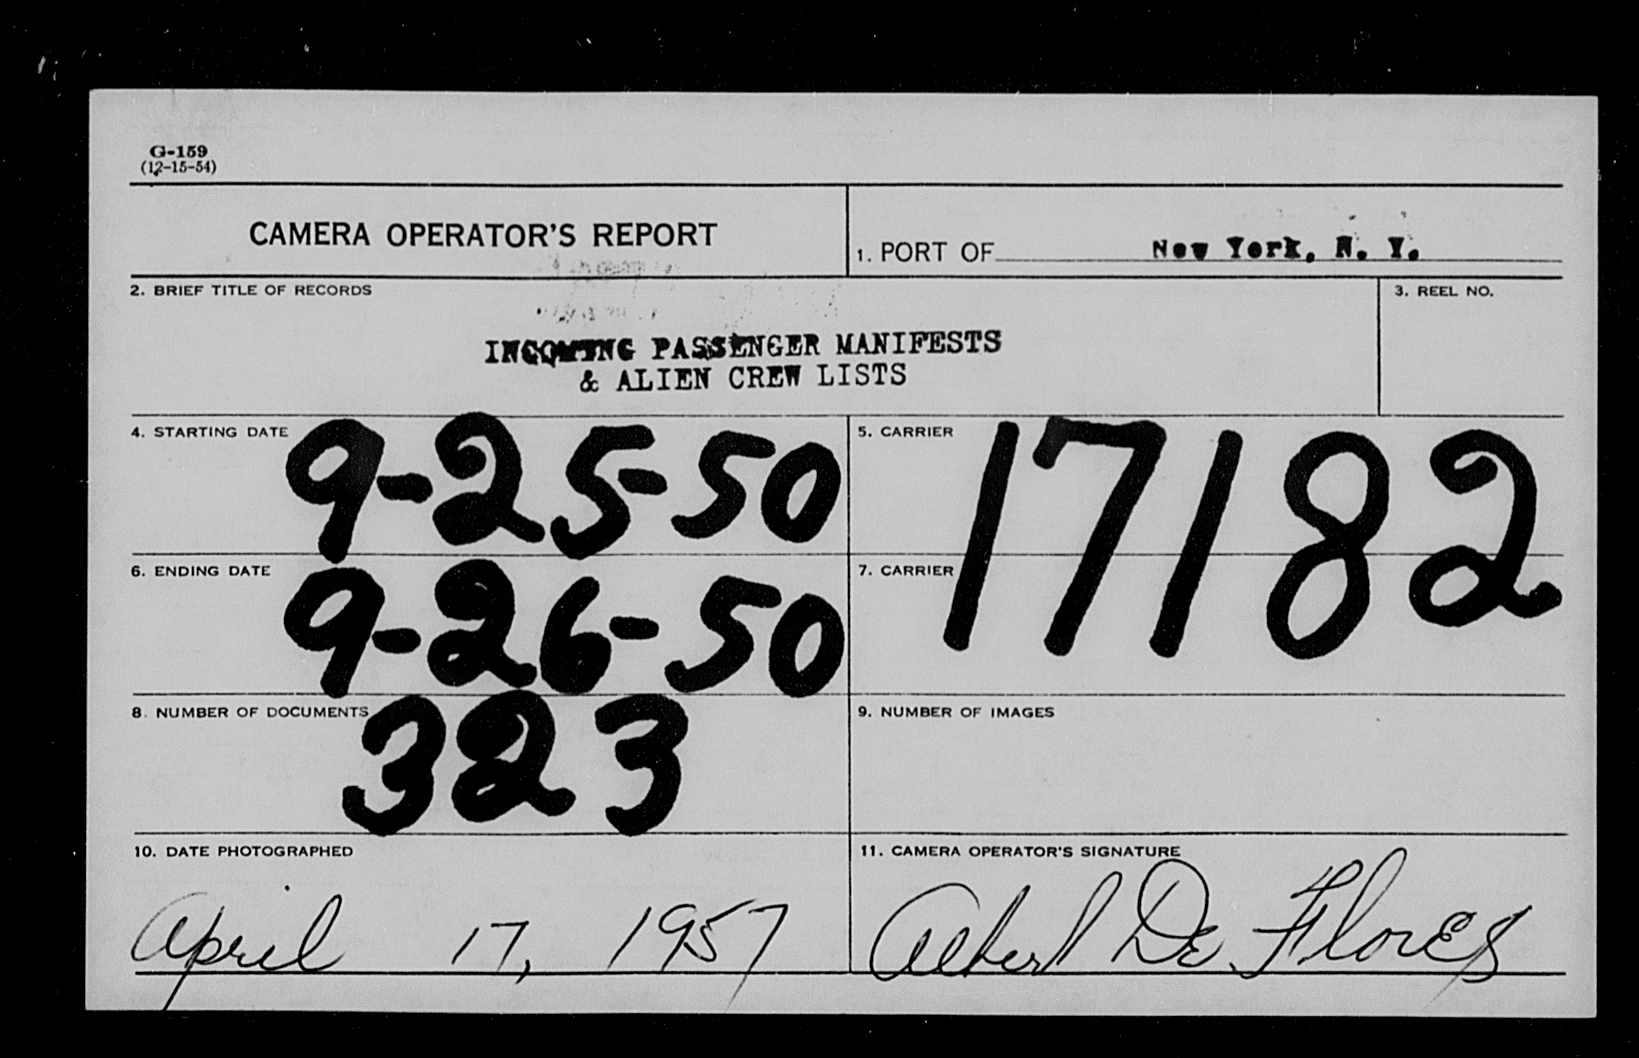 G-159
(12-15-54)
CAMERA OPERATOR'S REPORT
1. PORT OF New York, N. Y.
2. BRIEF TITLE OF RECORDS
3. REEL NO.
INCOMING PASSENGER MANIFESTS
& ALIEN CREW LISTS
4. STARTING DATE 9-25-50
5. CARRIER 17182
6. ENDING DATE 9-26-50
7. CARRIER
8. NUMBER OF DOCUMENTS 323
9. NUMBER OF IMAGES
10. DATE PHOTOGRAPHED
11. CAMERA OPERATOR'S SIGNATURE
April 17, 1957
Albert De Flores